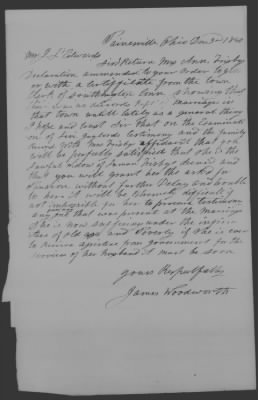 Painesville Ohio Dec 3rd 1840
Mr J L Edwards
Sir I Return Mrs Ann Frisby
Declaration ammended to your order togeth
er with a certifficate from the town
Clerk of Southington Conn, showing that
their is no record kept of marriages in
that town untill lately as a general thing
I hope and trust Sir that on the Examinati
on of Gaylords testimony and the family
Record with Mrs Frisby affidavit that you
will be perfectly satisfied that she is the
lawful widow of James Frisby Deceased and
that you will grant her the asked for
Pension without further Delay and trouble
to her it will be utterly difficult if
not impossible for her to procure testimony
any one that was present at the Marriage
She is now suffering under the infirmi
ties of old age and Poverty if she is ever
to receive assistance from government for the
services of her husband it must be soon
yours Respectfully
James Woodworth